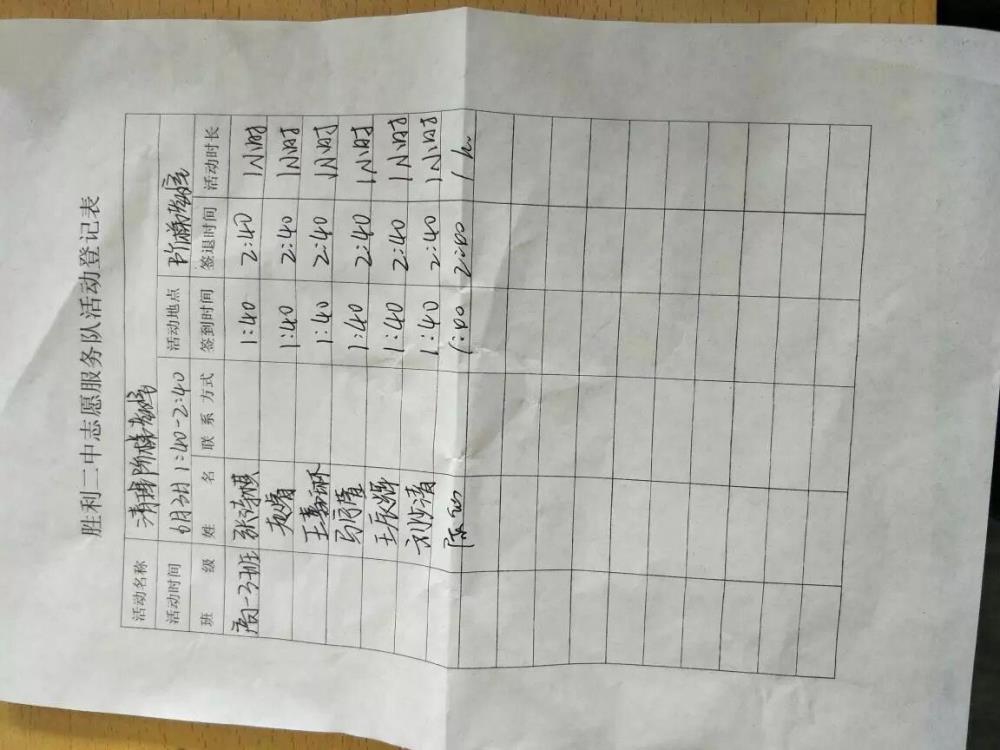 胜利二中志愿服务队活动登记表
活动名称 清扫阶梯教室
活动时间 6月3日 1:40-2:40 活动地点 阶梯教室
班级 姓名 联系方式 签到时间 签退时间 活动时长
高一3班 1:40 2:40 1小时
1:40 2:40 1小时
王 1:40 2:40 1小时
1:40 2:40 1小时
王辰辉 1:40 2:40 1小时
刘沙清 1:40 2:40 1小时
1:00 2:00 1h.